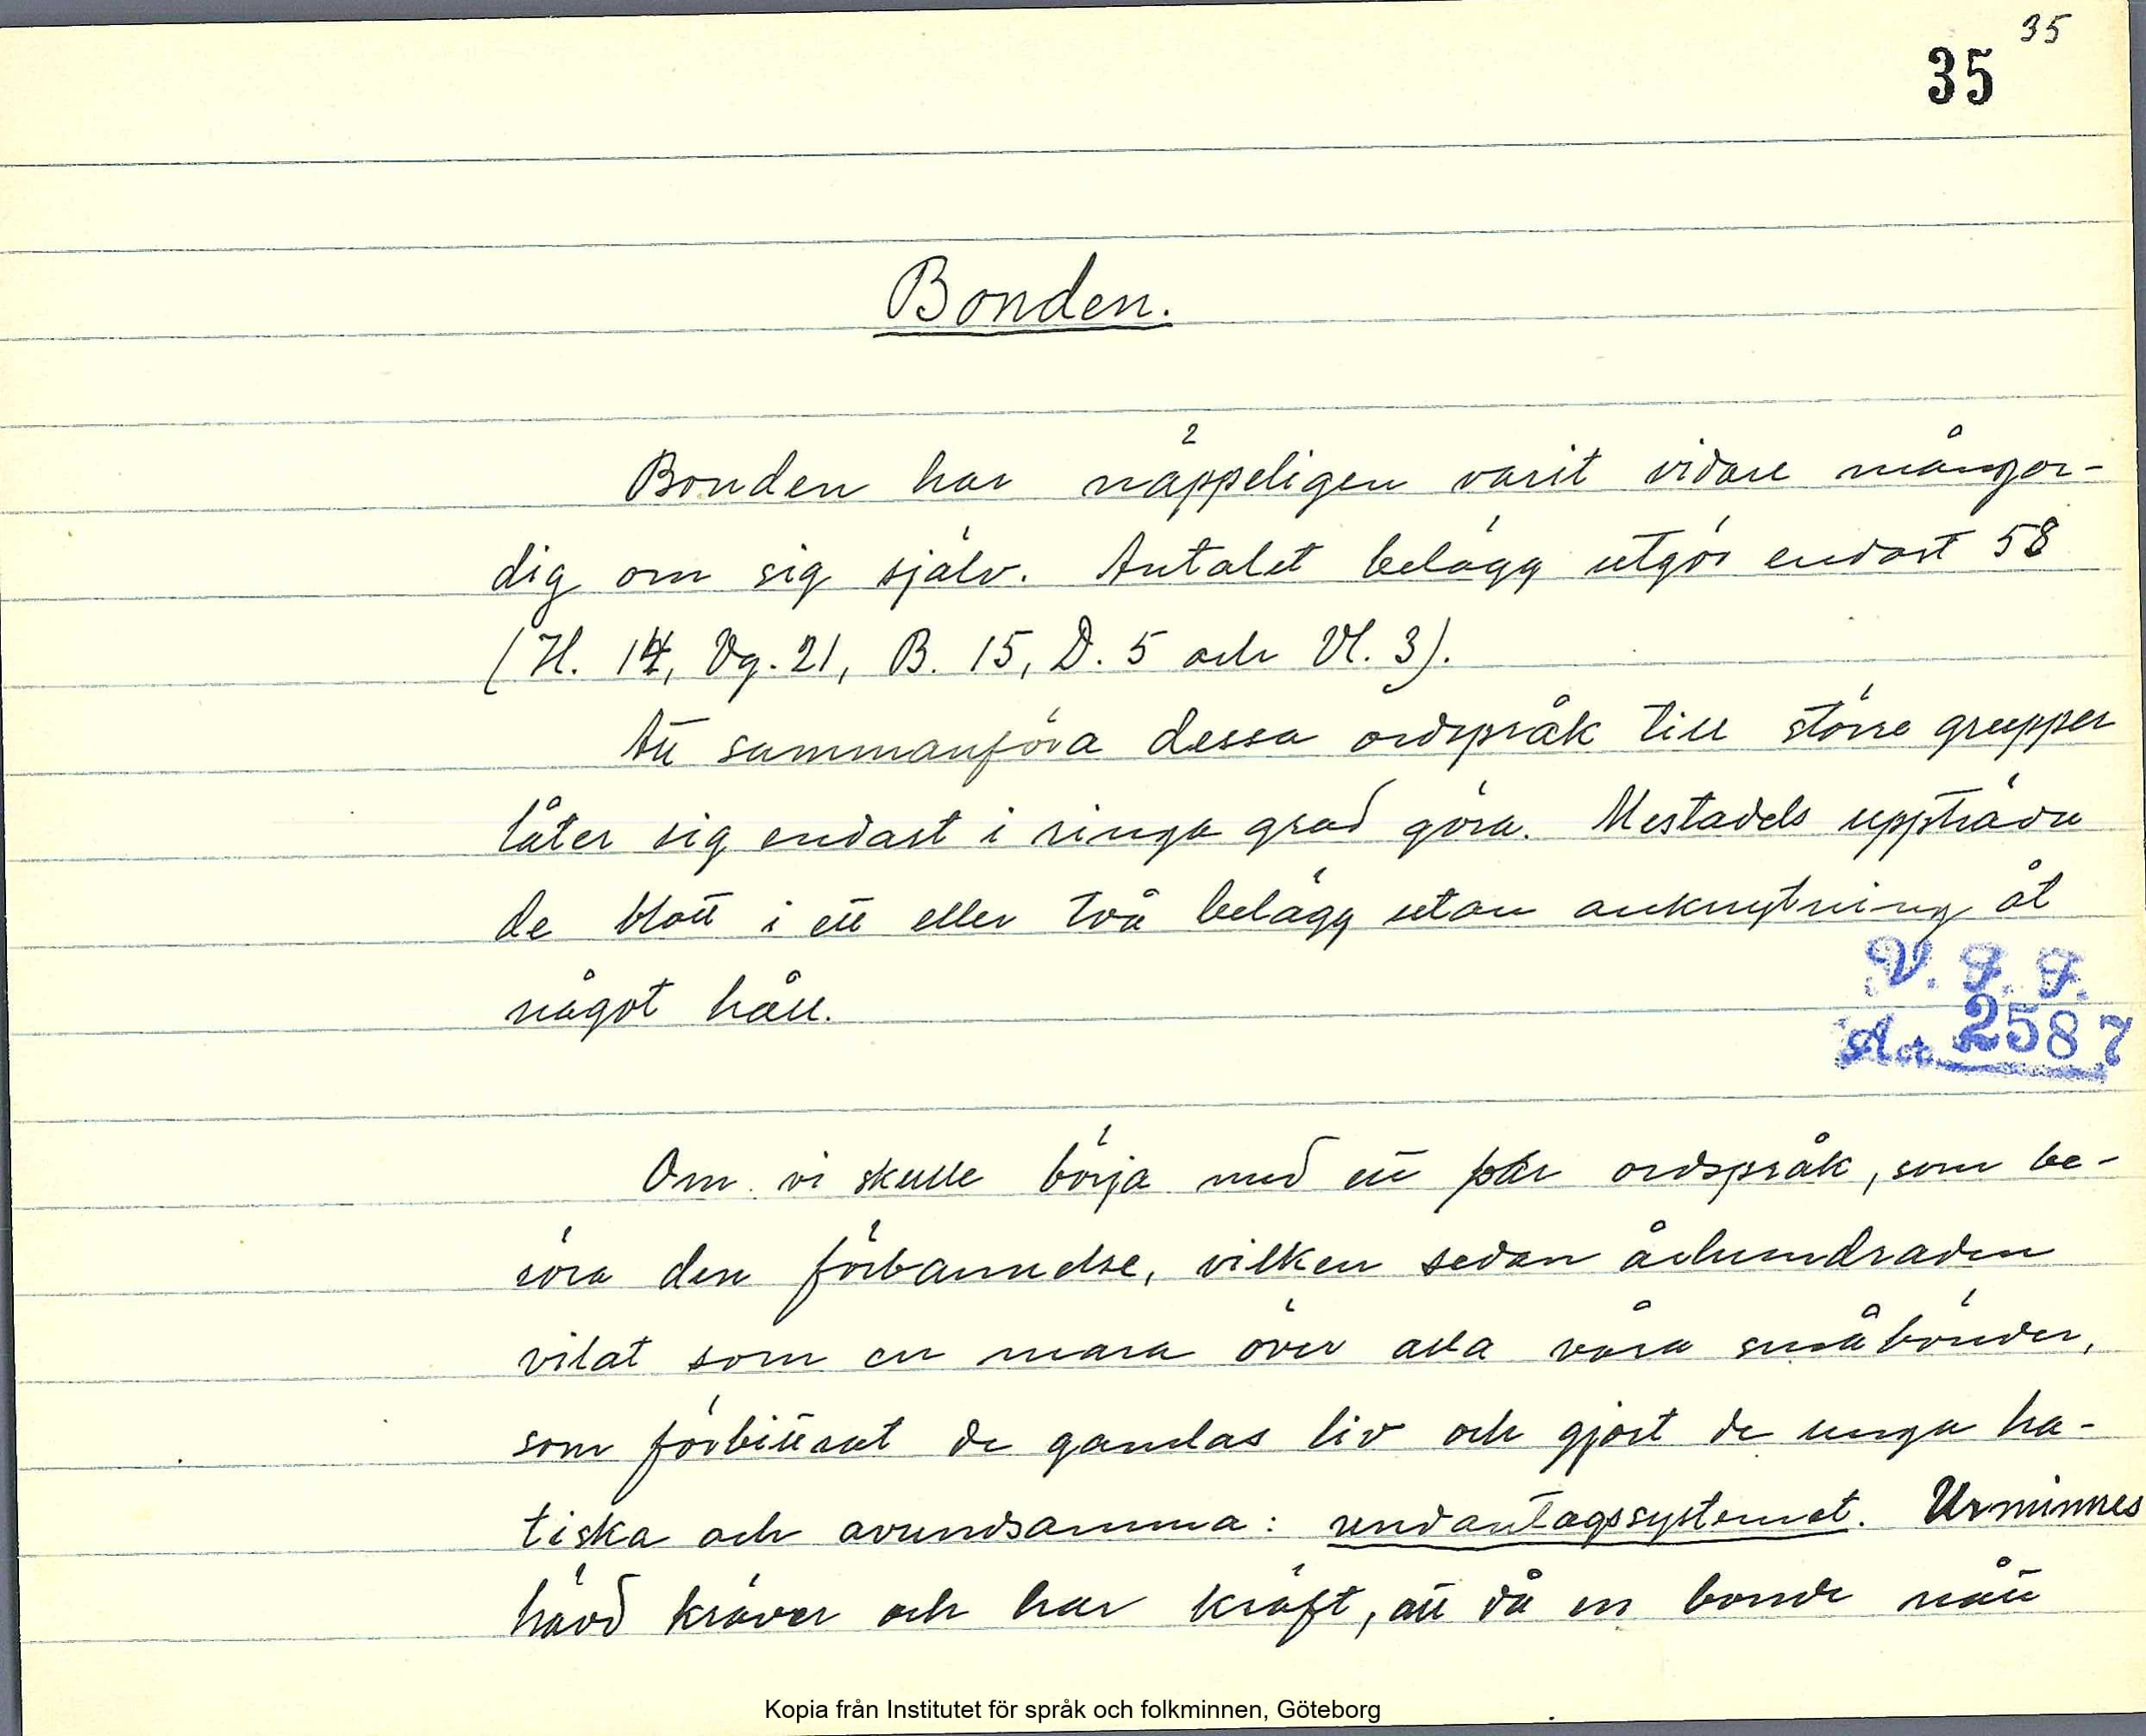 35
35
Bonden.
Bonden har näppeligen varit vidare mångor-
dig om sig själv. Antalet belägg utgör endast 58
(H. 14, Vg. 21, B. 15, D. 5 och Vl. 3).
Att sammanföra dessa ordspråk till större grupper
låter sig endast i ringa grad göra. Mestadels uppträda
de blott i ett eller två belägg utan anknytning åt
något håll.
V. F. F.
A:. 2587
Om vi skulle börja med ett par ordspråk, som be-
röra den förbannelse, vilken sedan århundraden
vilat som en mara över alla våra småbönder,
som förbittrat de gamlas liv och gjort de unga ha-
tiska och avundsamma: undantagssystemet. Urminnes
hävd kräver och har kraft, att då en bonde nått
Kopia från Institutet för språk och folkminnen, Göteborg